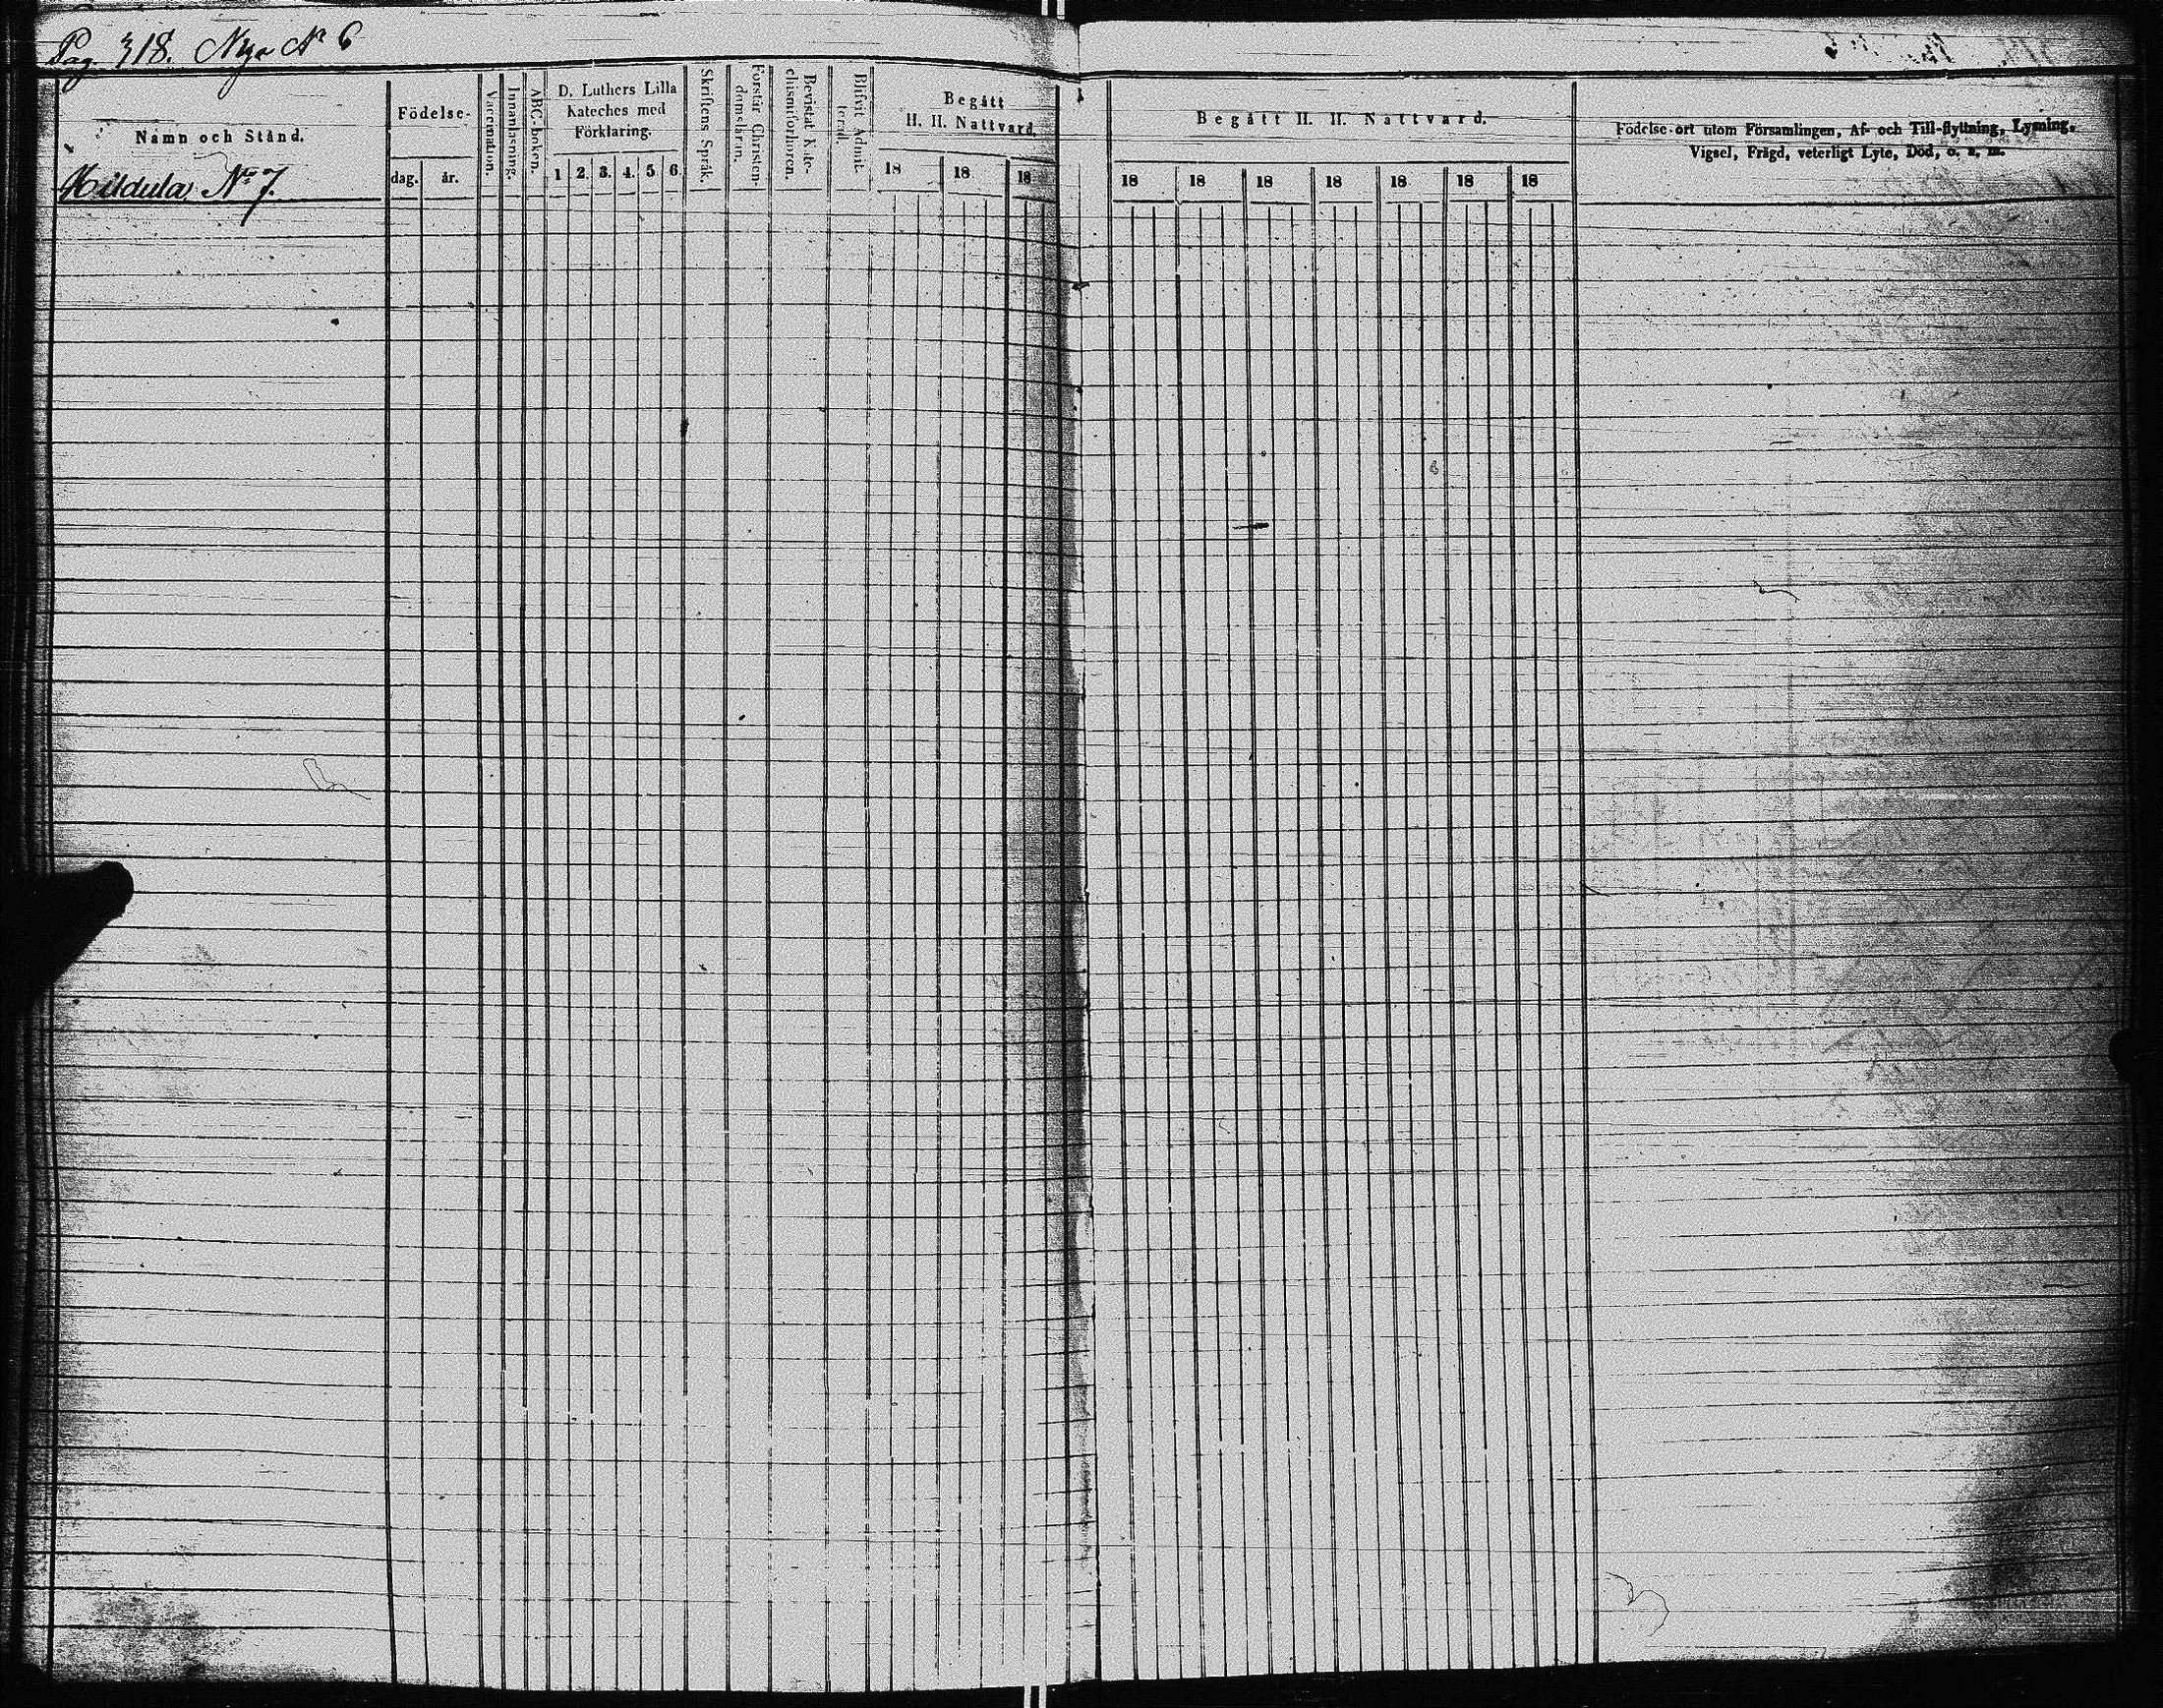 Pag. 318. Nya No 6
Namn och Stånd.
Hildula No 7.
Födelse-
dag. år.
Vaccination.
Innanläsning.
ABC-boken.
D. Luthers Lilla
Kateches med
Förklaring.
1 2. 3. 4. 5 6
Skriftens Språk.
Förstår Christen-
domslärin.
Bevistat Kate-
chismiförhören.
Blifvit Admit-
terad.
Begått
H. H. Nattvard.
18 18 18
Begått H. H. Nattvard.
18 18 18 18 18 18 18
Födelse-ort utom Församlingen, Af- och Till-flyttning, Lysning,
Vigsel, Frägd, veterligt Lyte, Död, o. s. m.